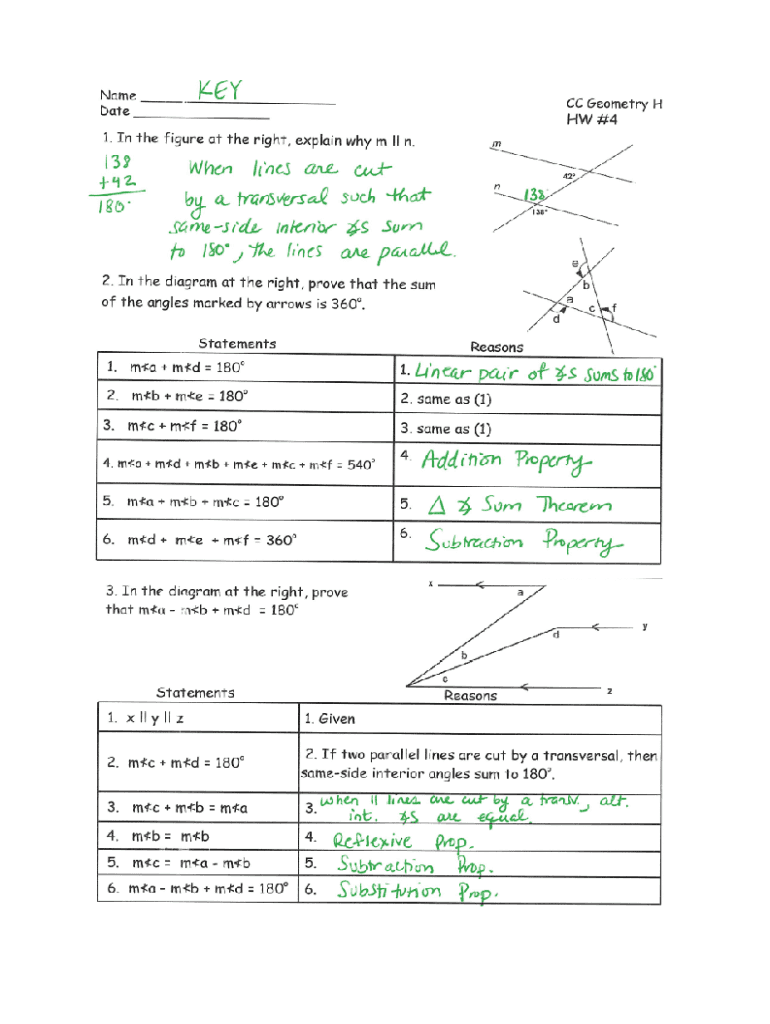 Name KEY
CC Geometry H
Date
HW #4
1. In the figure at the right, explain why m ll n.
138
+42
180°
When lines are cut
by a transversal such that
same-side interior ∡s sum
to 180°, the lines are parallel.
m
42°
n
138
138°
2. In the diagram at the right, prove that the sum
of the angles marked by arrows is 360°.
e
b
a
c
f
d
Statements
Reasons
1. m∢a + m∢d = 180°
1. Linear pair of ∡s sums to 180°
2. m∢b + m∢e = 180°
2. same as (1)
3. m∢c + m∢f = 180°
3. same as (1)
4. m∢a + m∢d + m∢b + m∢e + m∢c + m∢f = 540°
4. Addition Property
5. m∢a + m∢b + m∢c = 180°
5. Δ ∡ Sum Theorem
6. m∢d + m∢e + m∢f = 360°
6. Subtraction Property
3. In the diagram at the right, prove
that m∢a - m∢b + m∢d = 180°
x
a
y
d
b
c
z
Statements
Reasons
1. x ll y ll z
1. Given
2. m∢c + m∢d = 180°
2. If two parallel lines are cut by a transversal, then
same-side interior angles sum to 180°.
3. m∢c + m∢b = m∢a
3. when ll lines are cut by a transv., alt.
int. ∡s are equal.
4. m∢b = m∢b
4. Reflexive Prop.
5. m∢c = m∢a - m∢b
5. Subtraction Prop.
6. m∢a - m∢b + m∢d = 180°
6. Substitution Prop.